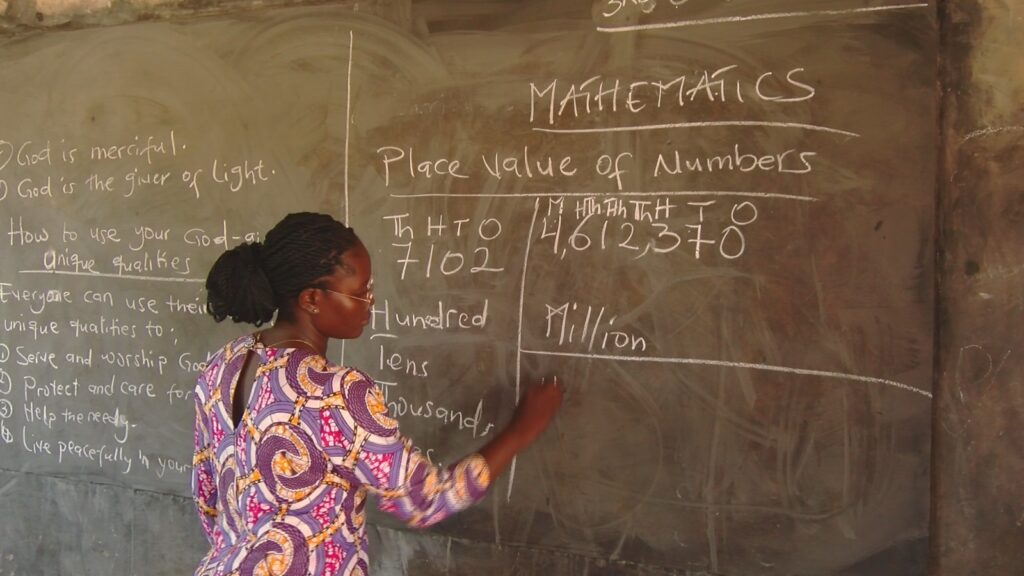 God is merciful.
God is the giver of Light.
How to use your God-
unique qualities
Everyone can use their
unique qualities to;
① Serve and worship God
② Protect and care for
③ Help the needy.
Live peacefully in your
MATHEMATICS
Place Value of Numbers
Th H T O
7102
Hundred
Tens
Thousands
M HTh TTh Th H T O
4,612,370
Million